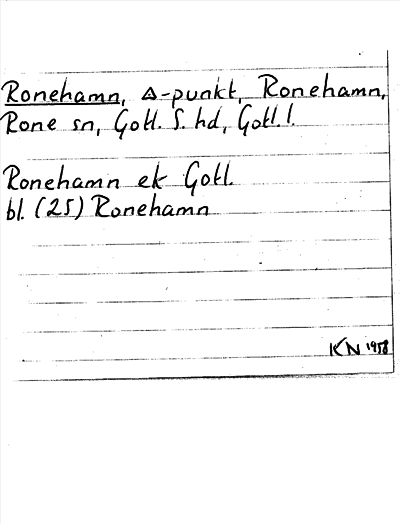 Ronehamn, △-punkt, Ronehamn,
Rone sn, Gotl. S. hd, Gotl. l.
Ronehamn ek Gotl.
bl. (25) Ronehamn
KN 1958